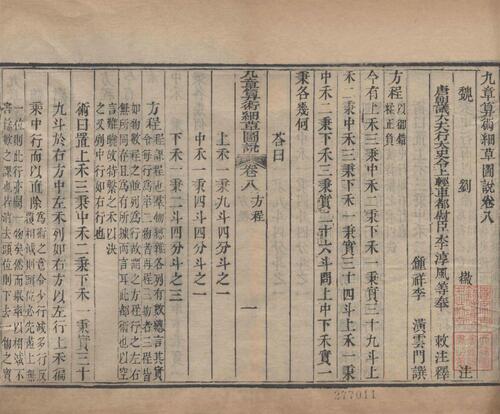 九章算術細草圖說卷八
魏 劉 徽 注
唐朝議大夫行太史令上輕車都尉臣李淳風等奉 敕注釋
鍾祥李 潢雲門譔
方程以御錯糅正負
今有上禾三秉中禾二秉下禾一秉實三十九斗上
禾二秉中禾三秉下禾一秉實三十四斗上禾一秉
中禾二秉下禾三秉實二十六斗問上中下禾實一
秉各幾何
荅曰
九章算術細草圖說 卷八 方程 一
上禾一秉九斗四分斗之一
中禾一秉四斗四分斗之一
下禾一秉二斗四分斗之三
方程程課程也羣物總雜各列有數總言其實
令每行為率二物者再程三物者三程皆
如物數程之竝列為行故謂之方程行之左右
無所同存且為有所據而言耳此都術也以空
言難曉故特繫之禾以決
之又列中行如右行也
術曰置上禾三秉中禾二秉下禾一秉實三十
九斗於右方中左禾列如右方以右行上禾徧
乘中行而以直除為術之意令少行減多行反
覆相減則頭位必先盡上無
一位則此行亦闕一物矣然而舉率以相減不
害餘數之課也若消去頭位則下去一物之實
277011